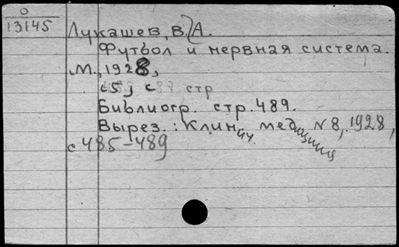 0
13145
Лукашев, В. А.
Футбол и нервная система.
М., 1928,
стр
Библиогр. стр. 489.
Вырез.: Клинич. медицина N 8, 1928,
с 485-489